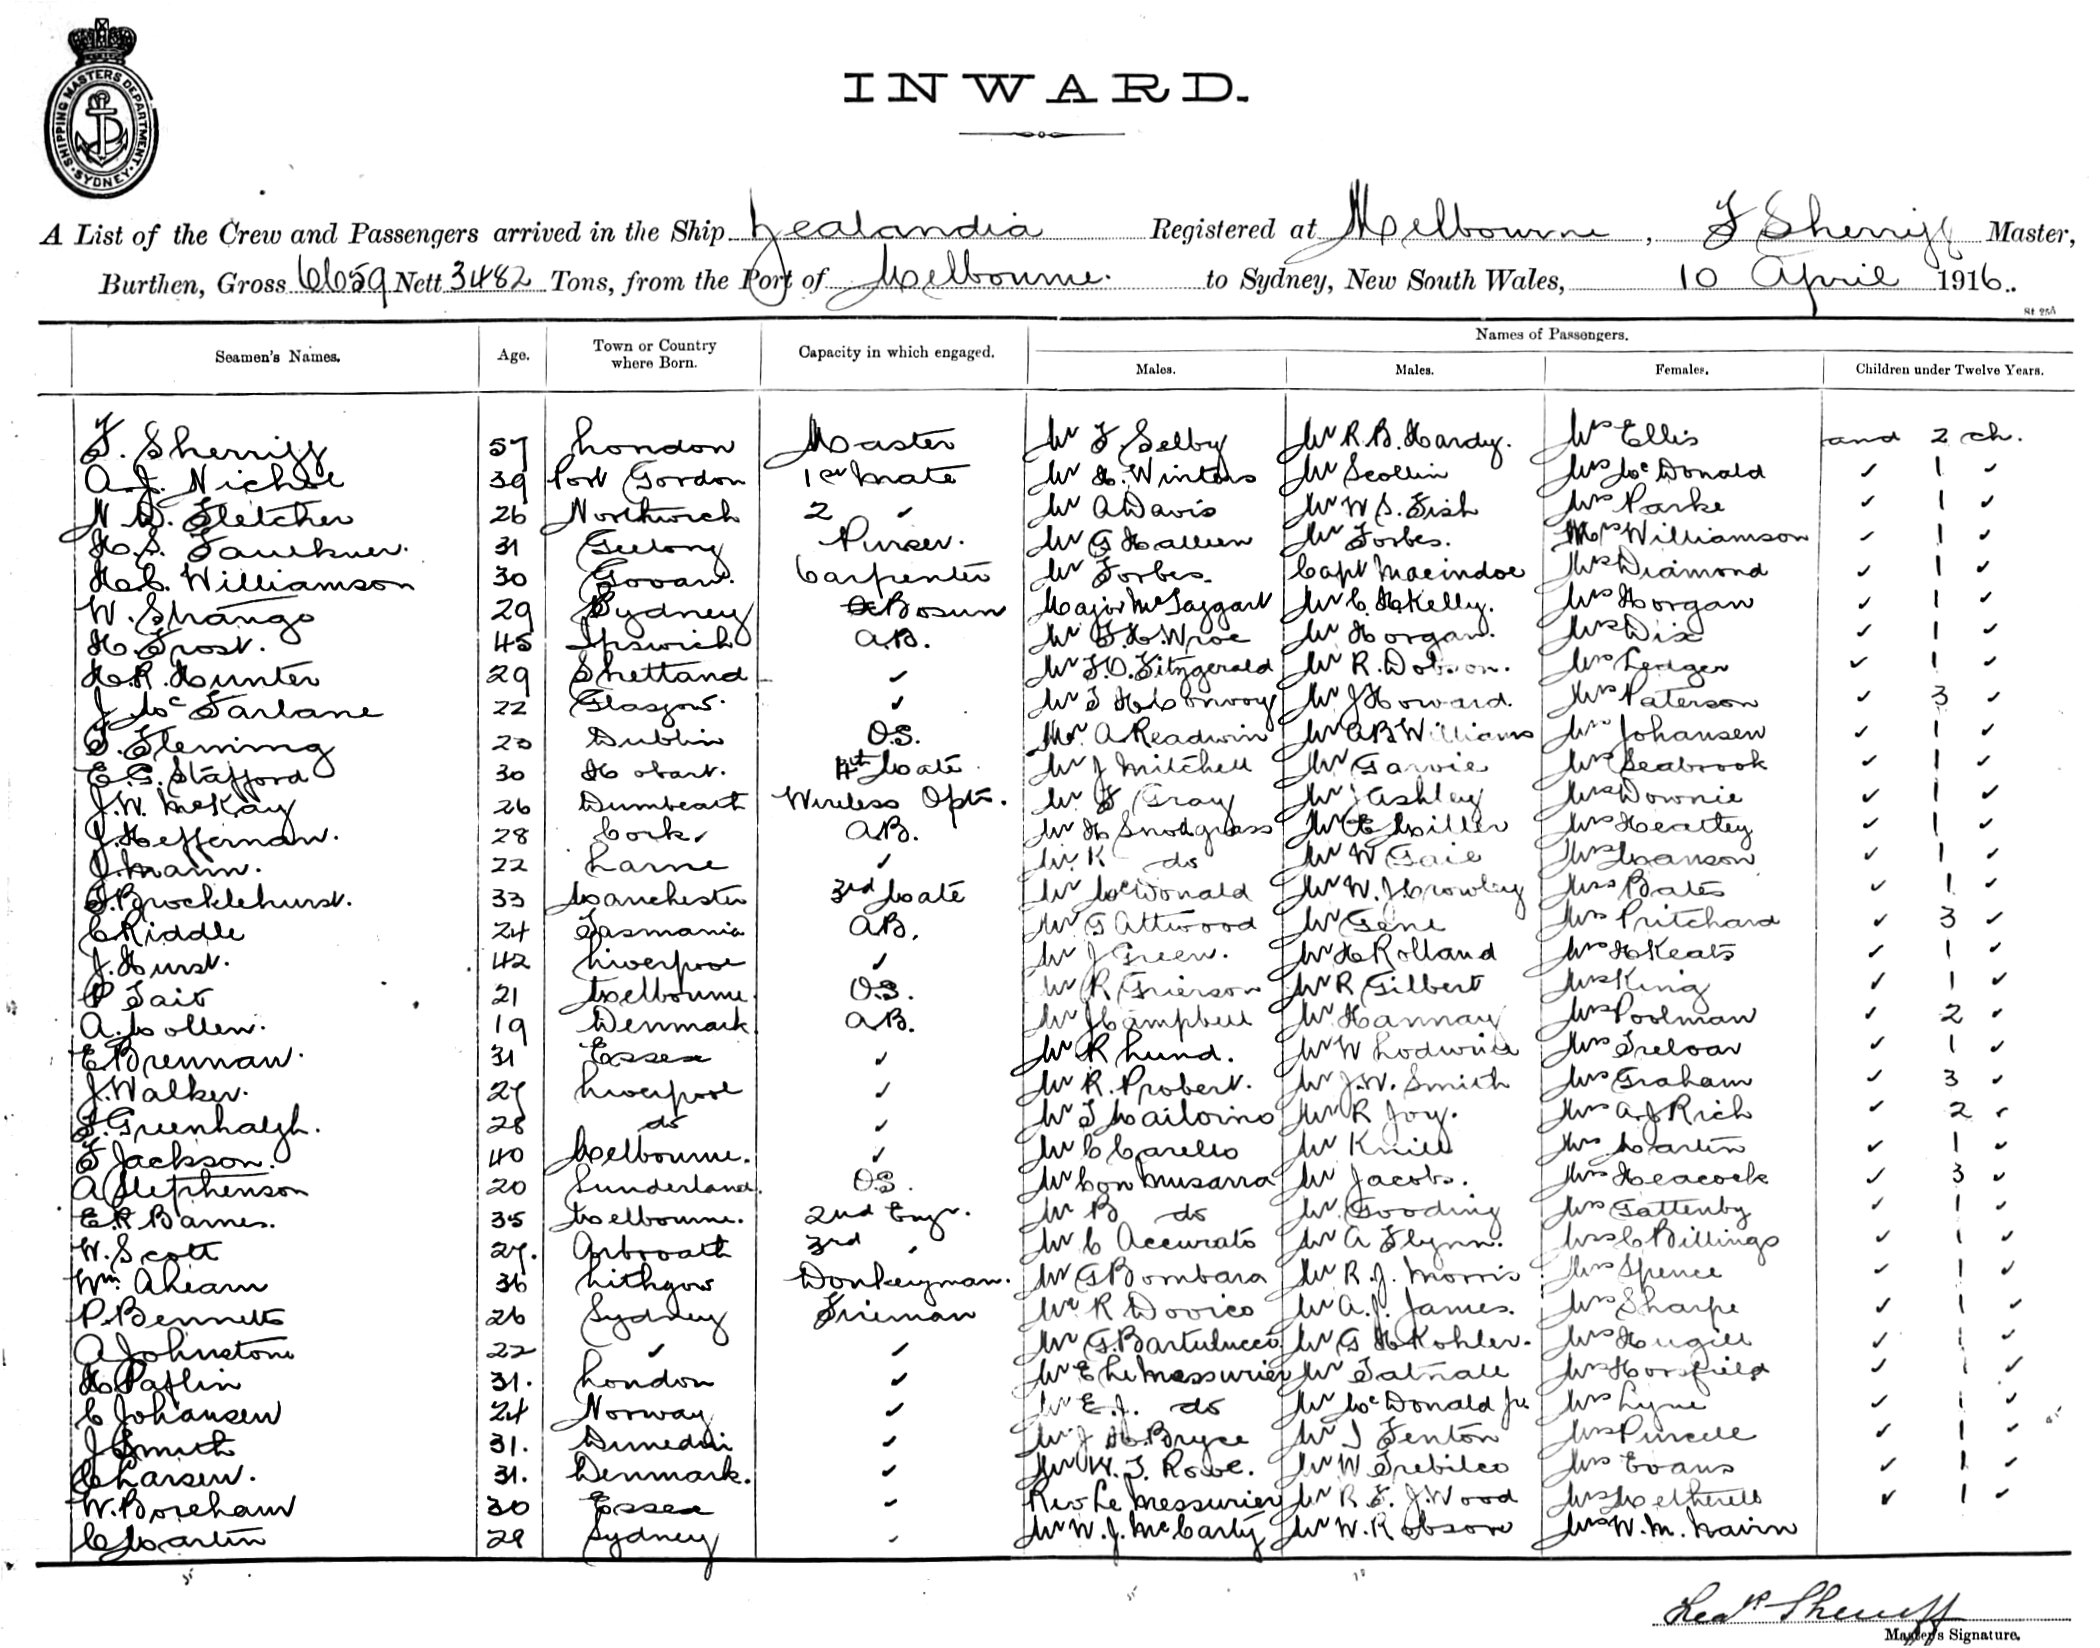 SHIPPING MASTERS DEPARTMENT. SYDNEY.
INWARD.
A List of the Crew and Passengers arrived in the Ship Zealandia Registered at Melbourne, F Sherriff Master,
Burthen, Gross 6659 Nett 3482 Tons, from the Port of Melbourne. to Sydney, New South Wales, 10 April 1916.
Seamen's Names. Age. Town or Country where Born. Capacity in which engaged. Names of Passengers.
Males. Males. Females. Children under Twelve Years.
F. Sherriff 57 London Master Mr F Selby Mr R. B. Hardy. Mrs Ellis and 2 ch.
A. J. Nichol 39 Port Gordon 1st Mate Mr H. Winters Mr Scollin Mrs McDonald ✓ 1 ✓
N. D. Fletcher 26 Northwich 2 ✓ Mr A Davis Mr W S. Fish Mrs Parke ✓ 1 ✓
H. S. Faulkner. 31 Geelong Purser. Mr G Hallien Mr Forbes. Mrs Williamson ✓ 1 ✓
H. C. Williamson 30 Govan. Carpenter Mr Forbes. Capt Macindoe Mrs Diamond ✓ 1 ✓
W. Strange 29 Sydney Bosun Major McTaggart Mr C. H Kelly. Mrs Horgan ✓ 1 ✓
H. Frost. 45 Ipswich A.B. Mr F. H. Wroe Mr Horgan. Mrs Dix ✓ 1 ✓
H. R. Hunter 29 Shetland ✓ Mr F. O. Fitzgerald Mr R. Dobson. Mrs Ledger ✓ 1 ✓
J. McFarlane 22 Glasgow. ✓ Mr T H Convoy Mr J Howard. Mrs Paterson ✓ 3 ✓
T. Fleming 20 Dublin O.S. Mr A Readwin Mr A B Williams Mrs Johansen ✓ 1 ✓
E. G. Stafford 30 Hobart. 4th Mate Mr J Mitchell Mr Garvie Mrs Seabrook ✓ 1 ✓
J. W. McKay 26 Dunbeath Wireless Optr. Mr F Gray Mr J Ashley Mrs Downie ✓ 1 ✓
J. Heffernan. 28 Cork. A.B. Mr H Snodgrass Mr E Miller Mrs Heatley ✓ 1 ✓
J. Mann. 22 Larne ✓ Mr K do Mr W Gaie Mrs Manson ✓ 1 ✓
F. Brocklehurst. 33 Manchester 3rd Mate Mr McDonald Mr W. J Crowley Mrs Bates ✓ 1 ✓
C Riddle 24 Tasmania A.B. Mr G Attwood Mr Gene Mrs Pritchard ✓ 3 ✓
J. Hurst. 42 Liverpool ✓ Mr J Green. Mr H Rolland Mrs H Keats ✓ 1 ✓
P Tait 21 Melbourne. O.S. Mr R Grierson Mr R Gilbert Mrs King ✓ 1 ✓
A. Mollen. 19 Denmark A.B. Mr J Campbell Mr Hannay Mrs Poolman ✓ 2 ✓
E Brennan. 31 Essex ✓ Mr R Lund. Mr W Lodwick Mrs Treloar ✓ 1 ✓
J. Walker. 27 Liverpool ✓ Mr R. Probert. Mr J. W. Smith Mrs Graham ✓ 3 ✓
F. Greenhalgh. 28 do ✓ Mr T Mailoino Mr R Joy. Mrs A J Rich ✓ 2 ✓
F Jackson. 40 Melbourne. ✓ Mr C Carello Mr Knill Mrs Martin ✓ 1 ✓
A Stephenson 20 Sunderland. O.S. Mr Con Musarra Mr Jacobs. Mrs Heacock ✓ 3 ✓
E. R Barnes. 35 Melbourne. 2nd Engr. Mr B do Mr Gooding Mrs Gattenby ✓ 1 ✓
W. Scott 27. Arbroath 3rd ✓ Mr C Accurato Mr A Flynn. Mrs C Billings ✓ 1 ✓
Wm. Ahearn 36 Lithgow Donkeyman. Mr G Bombara Mr R. J. Morris Mrs Spence ✓ 1 ✓
P. Bennetts 26 Sydney Fireman Mr R Dovico Mr A. J. James. Mrs Sharpe ✓ 1 ✓
A Johnstone 22 ✓ ✓ Mr G. Bartulucci Mr G H Kohler. Mrs Hugill ✓ 1 ✓
H Paflin 31. London ✓ Mr E Le Messurier Mr Tatnall Mrs Horsfield ✓ 1 ✓
C Johansen 24 Norway ✓ Mr E. J. do Mr McDonald Jr Mrs Lyne ✓ 1 ✓
J Smith 31. Dunedin ✓ Mr J H. Bryce Mr J Fenton Mrs Purcell ✓ 1 ✓
C Larsen. 31. Denmark. ✓ Mr W. T. Rowe. Mr W Trebilco Mrs Evans ✓ 1 ✓
W. Boreham 30 Essex ✓ Rev Le Messurier Mr R. F. J. Wood Mrs Metherell ✓ 1 ✓
C Martin 29 Sydney ✓ Mr W. J. McCarty Mr W. Robson Mrs W. M. Nairn
Fredk Sherriff
Master's Signature.